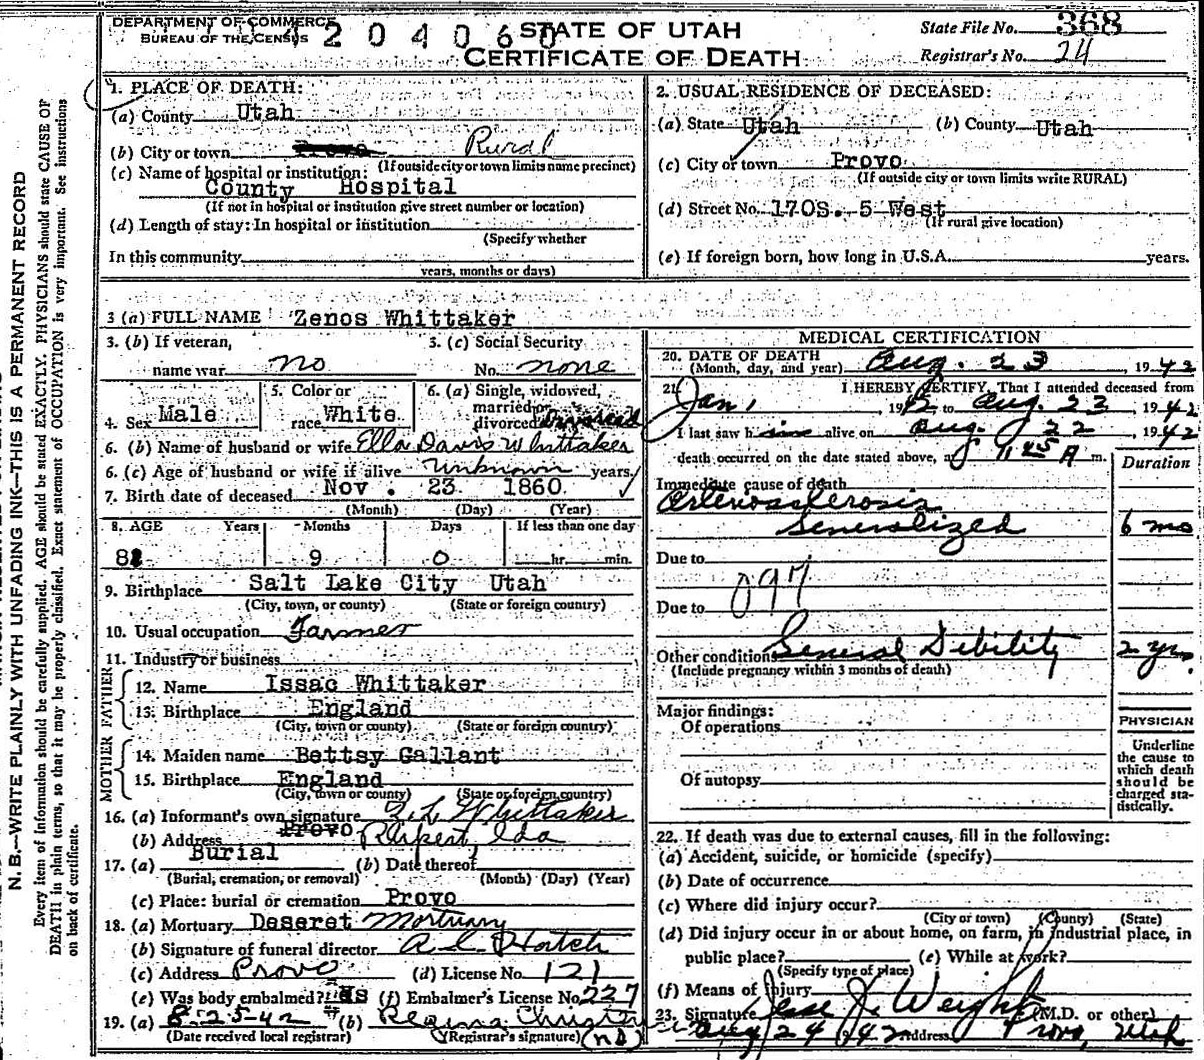 DEPARTMENT OF COMMERCE
BUREAU OF THE CENSUS
4204060
STATE OF UTAH
CERTIFICATE OF DEATH
State File No. 368
Registrar's No. 24
N. B.—WRITE PLAINLY WITH UNFADING INK—THIS IS A PERMANENT RECORD
Every item of information should be carefully supplied. AGE should be stated EXACTLY. PHYSICIANS should state CAUSE OF
DEATH in plain terms, so that it may be properly classified. Exact statement of OCCUPATION is very important. See instructions
on back of certificate.
1. PLACE OF DEATH:
(a) County Utah
(b) City or town Provo Rural
(If outside city or town limits name precinct)
(c) Name of hospital or institution:
County Hospital
(If not in hospital or institution give street number or location)
(d) Length of stay: In hospital or institution
(Specify whether
In this community
years, months or days)
2. USUAL RESIDENCE OF DECEASED:
(a) State Utah (b) County Utah
(c) City or town Provo
(If outside city or town limits write RURAL)
(d) Street No. 170 S. 5 West
(If rural give location)
(e) If foreign born, how long in U.S.A. years.
3 (a) FULL NAME Zenos Whittaker
3. (b) If veteran,
name war no
3. (c) Social Security
No. none
4. Sex Male
5. Color or
race White
6. (a) Single, widowed,
married or
divorced Divorced
6. (b) Name of husband or wife Ella Davis Whittaker
6. (c) Age of husband or wife if alive unknown years
7. Birth date of deceased Nov. 23 1860
(Month) (Day) (Year)
8. AGE Years Months Days If less than one day
9 0 hr. min.
9. Birthplace Salt Lake City Utah
(City, town, or county) (State or foreign country)
10. Usual occupation Farmer
11. Industry or business
FATHER
12. Name Issac Whittaker
13. Birthplace England
(City, town or county) (State or foreign country)
MOTHER
14. Maiden name Bettsy Gallant
15. Birthplace England
(City, town or county) (State or foreign country)
16. (a) Informant's own signature Whittaker
(b) Address Provo Rupert, Ida
17. (a) Burial (b) Date thereof
(Burial, cremation, or removal) (Month) (Day) (Year)
(c) Place: burial or cremation Provo
18. (a) Mortuary Deseret Mortuary
(b) Signature of funeral director Hatch
(c) Address Provo (d) License No. 121
(e) Was body embalmed? yes (f) Embalmer's License No. 227
19. (a) 8-25-42 (b) Regina
(Date received local registrar) (Registrar's signature)
MEDICAL CERTIFICATION
20. DATE OF DEATH
(Month, day, and year) Aug. 23, 1942
21. I HEREBY CERTIFY, That I attended deceased from
Jan, 1942 to Aug. 23, 1942
I last saw him alive on Aug. 22, 1942
death occurred on the date stated above, at 45 A m.
Duration
Immediate cause of death
Arteriosclerosis
Generalized 6 mo
Due to
097
Due to
Other conditions General Debility 2 yrs.
(Include pregnancy within 3 months of death)
Major findings:
Of operations
Of autopsy
PHYSICIAN
Underline
the cause to
which death
should be
charged sta-
tistically.
22. If death was due to external causes, fill in the following:
(a) Accident, suicide, or homicide (specify)
(b) Date of occurrence
(c) Where did injury occur?
(City or town) (County) (State)
(d) Did injury occur in or about home, on farm, in industrial place, in
public place? (e) While at work?
(Specify type of place)
(f) Means of injury
23. Signature Jesse J. Weight (M.D. or other)
Aug 24 42 Address Provo, Utah